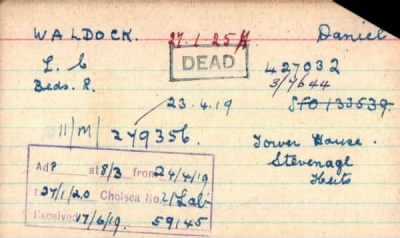 WALDOCK. 27.1.25 Daniel
DEAD
L. C 427032
Beds. R. 3/7644
23.4.19 SFO 133539.
11/M/ 279356.
Tower House.
Stevenage
Herts
Adp at 8/3 from 24/4/19
to 27/1/20 Chelsea No.
Received 17/6/19. 59145